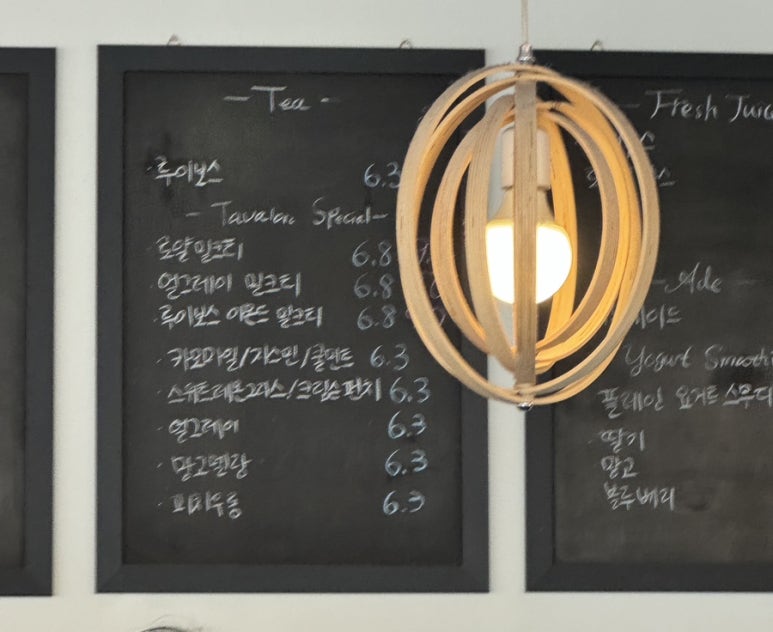 - Tea -
· 루이보스 6.3
- Tavalon Special -
· 로얄밀크티 6.8
· 얼그레이 밀크티 6.8
· 루이보스 아몬드 밀크티 6.8
· 카모마일/자스민/쿨민트 6.3
· 스위트레몬그라스/크림슨펀치 6.3
· 얼그레이 6.3
· 망고멜랑 6.3
· 피치우롱 6.3
- Fresh Juic
- Ade -
이드
Yogurt Smoothi
플레인 요거트 스무디
· 딸기
망고
블루베리